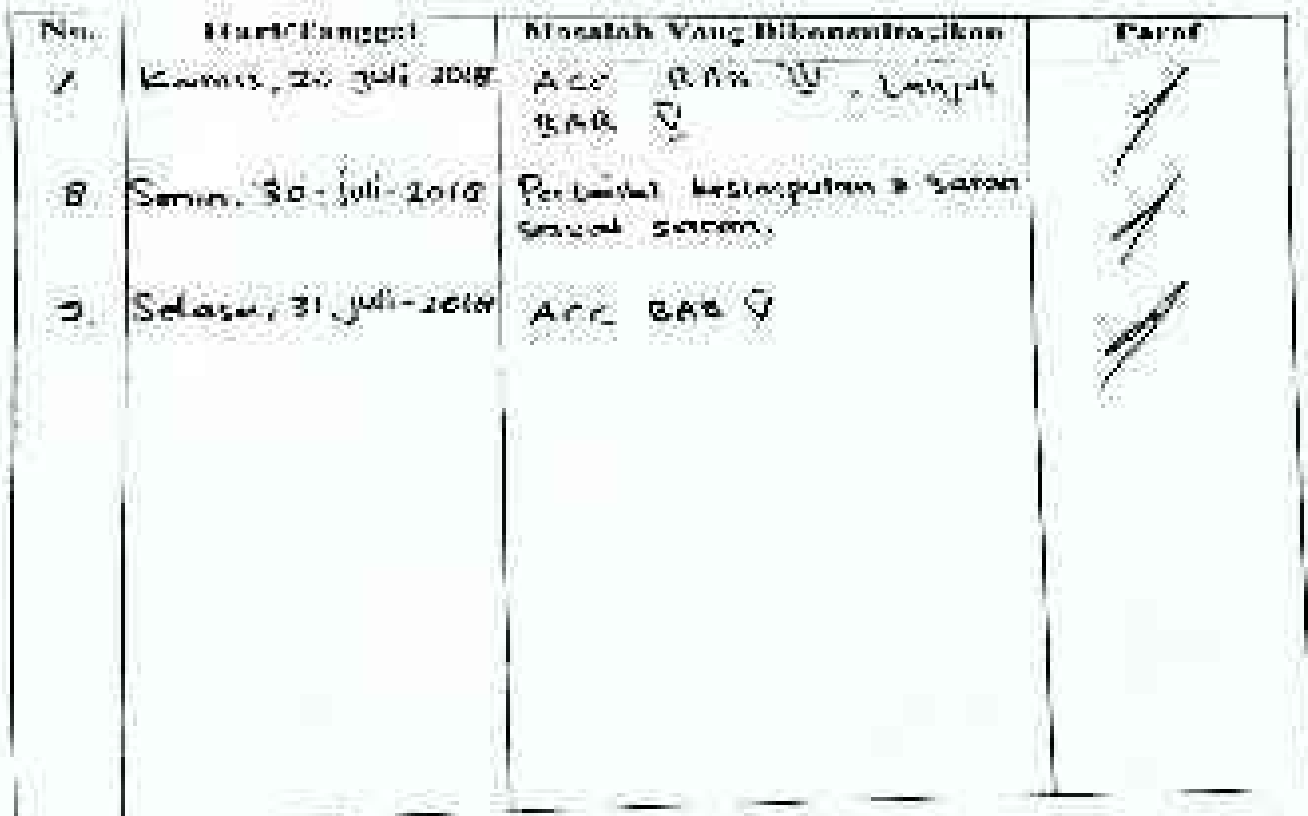 No. Hari/Tanggal Masalah Yang Paraf
Kamis, Juli 2018 ACC BAB IV, Lanjut
BAB V
8. Senin, 30-juli-2018 Perbaiki kesimpulan & saran
sesuai saran.
9. Selasa, 31-juli-2018 ACC BAB V